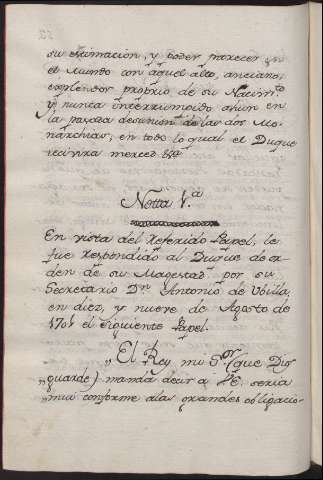 su estimación, y poder parecer en
el Mundo con aquel alto, anciano,
explendor proprio de su Nacim.to
y nunca interrumpido ahun en
la pasada desunion de las dos Mo-
narchias; en todo lo qual el Duque
recivira merced &a
Notta 1.a
En vista del referido Papel, le
fue respondido al Duque de or-
den de su Magestad por su
Secretario Dn Antonio de Vbilla,
en diez, y nueve de Agosto de
1701 el siguiente Papel.
„El Rey mi S.or (que Dios
„guarde) manda decir a VE. seria
„mui conforme alas grandes obligacio-